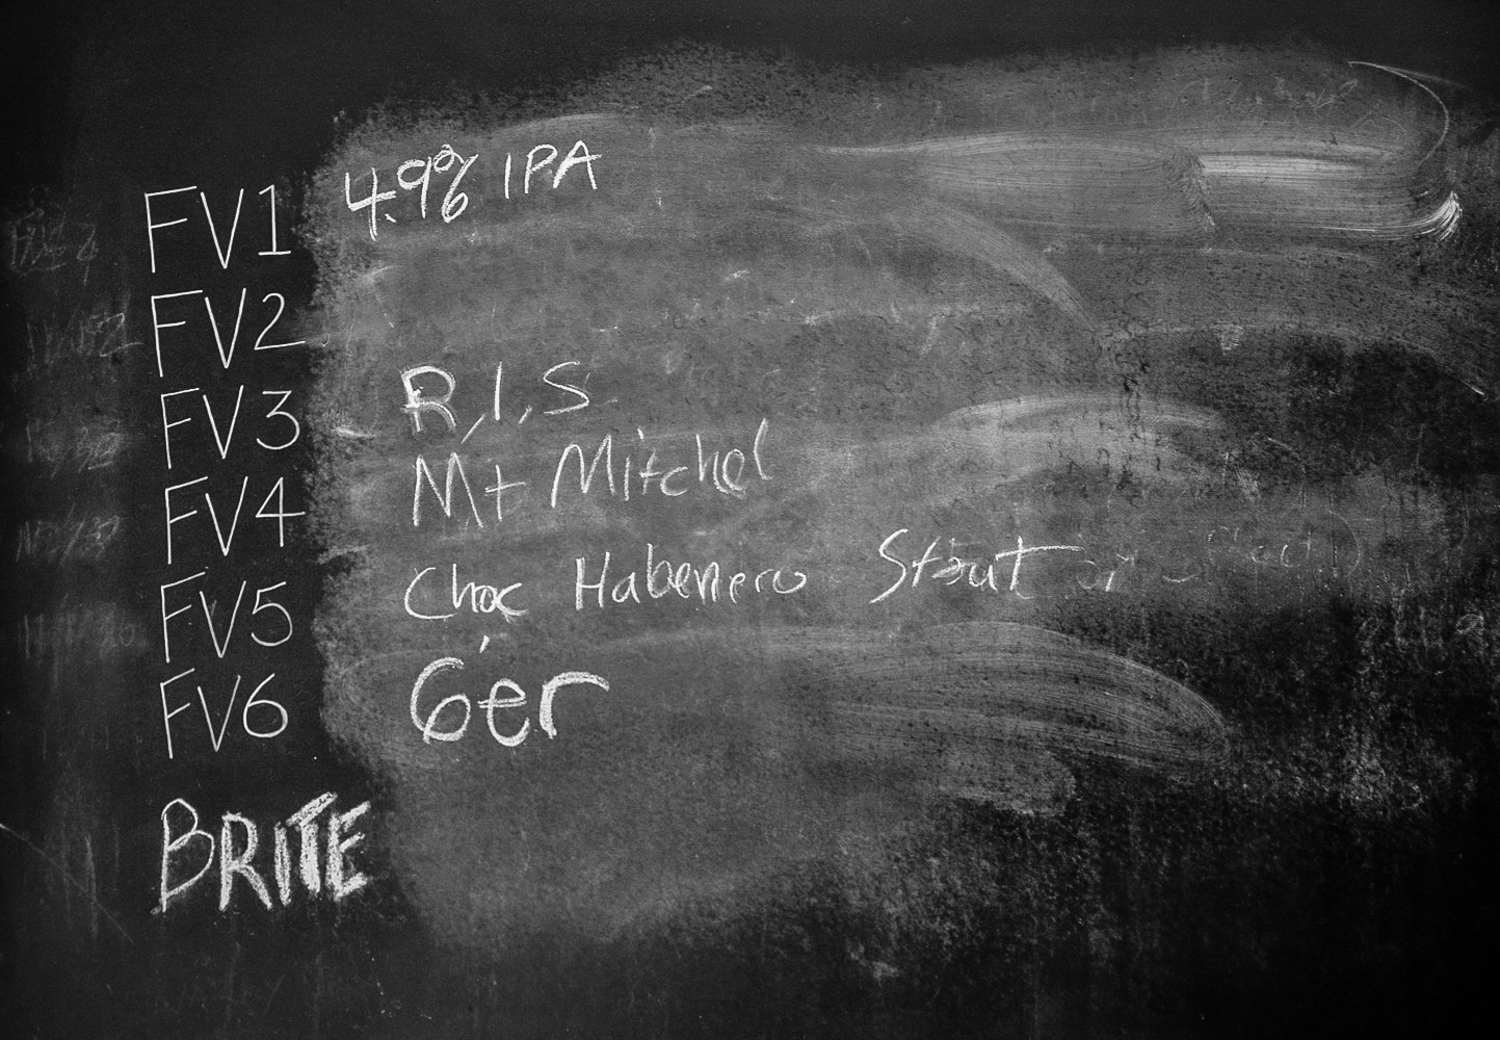 FV1 4.9% IPA
FV2
FV3 R,I,S
FV4 Mt Mitchel
FV5 Choc Habenero Stout
FV6 6er
BRITE